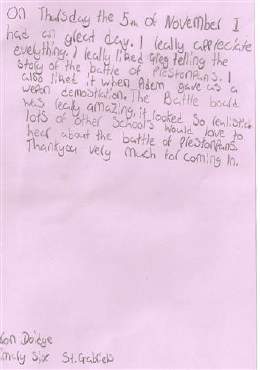 On Thursday the 5th of November I
had an great day. I really appreciate
everything. I really liked Greg telling the
story of the battle of Prestonpans. I
also liked it when Adem gave us a
wepon demostration. The Battle board
was really amazing, it looked so realistic
lots of other schools would love to
hear about the battle of Prestonpans.
Thankyou very much for coming in.
Doidge
Six St. Gabriels